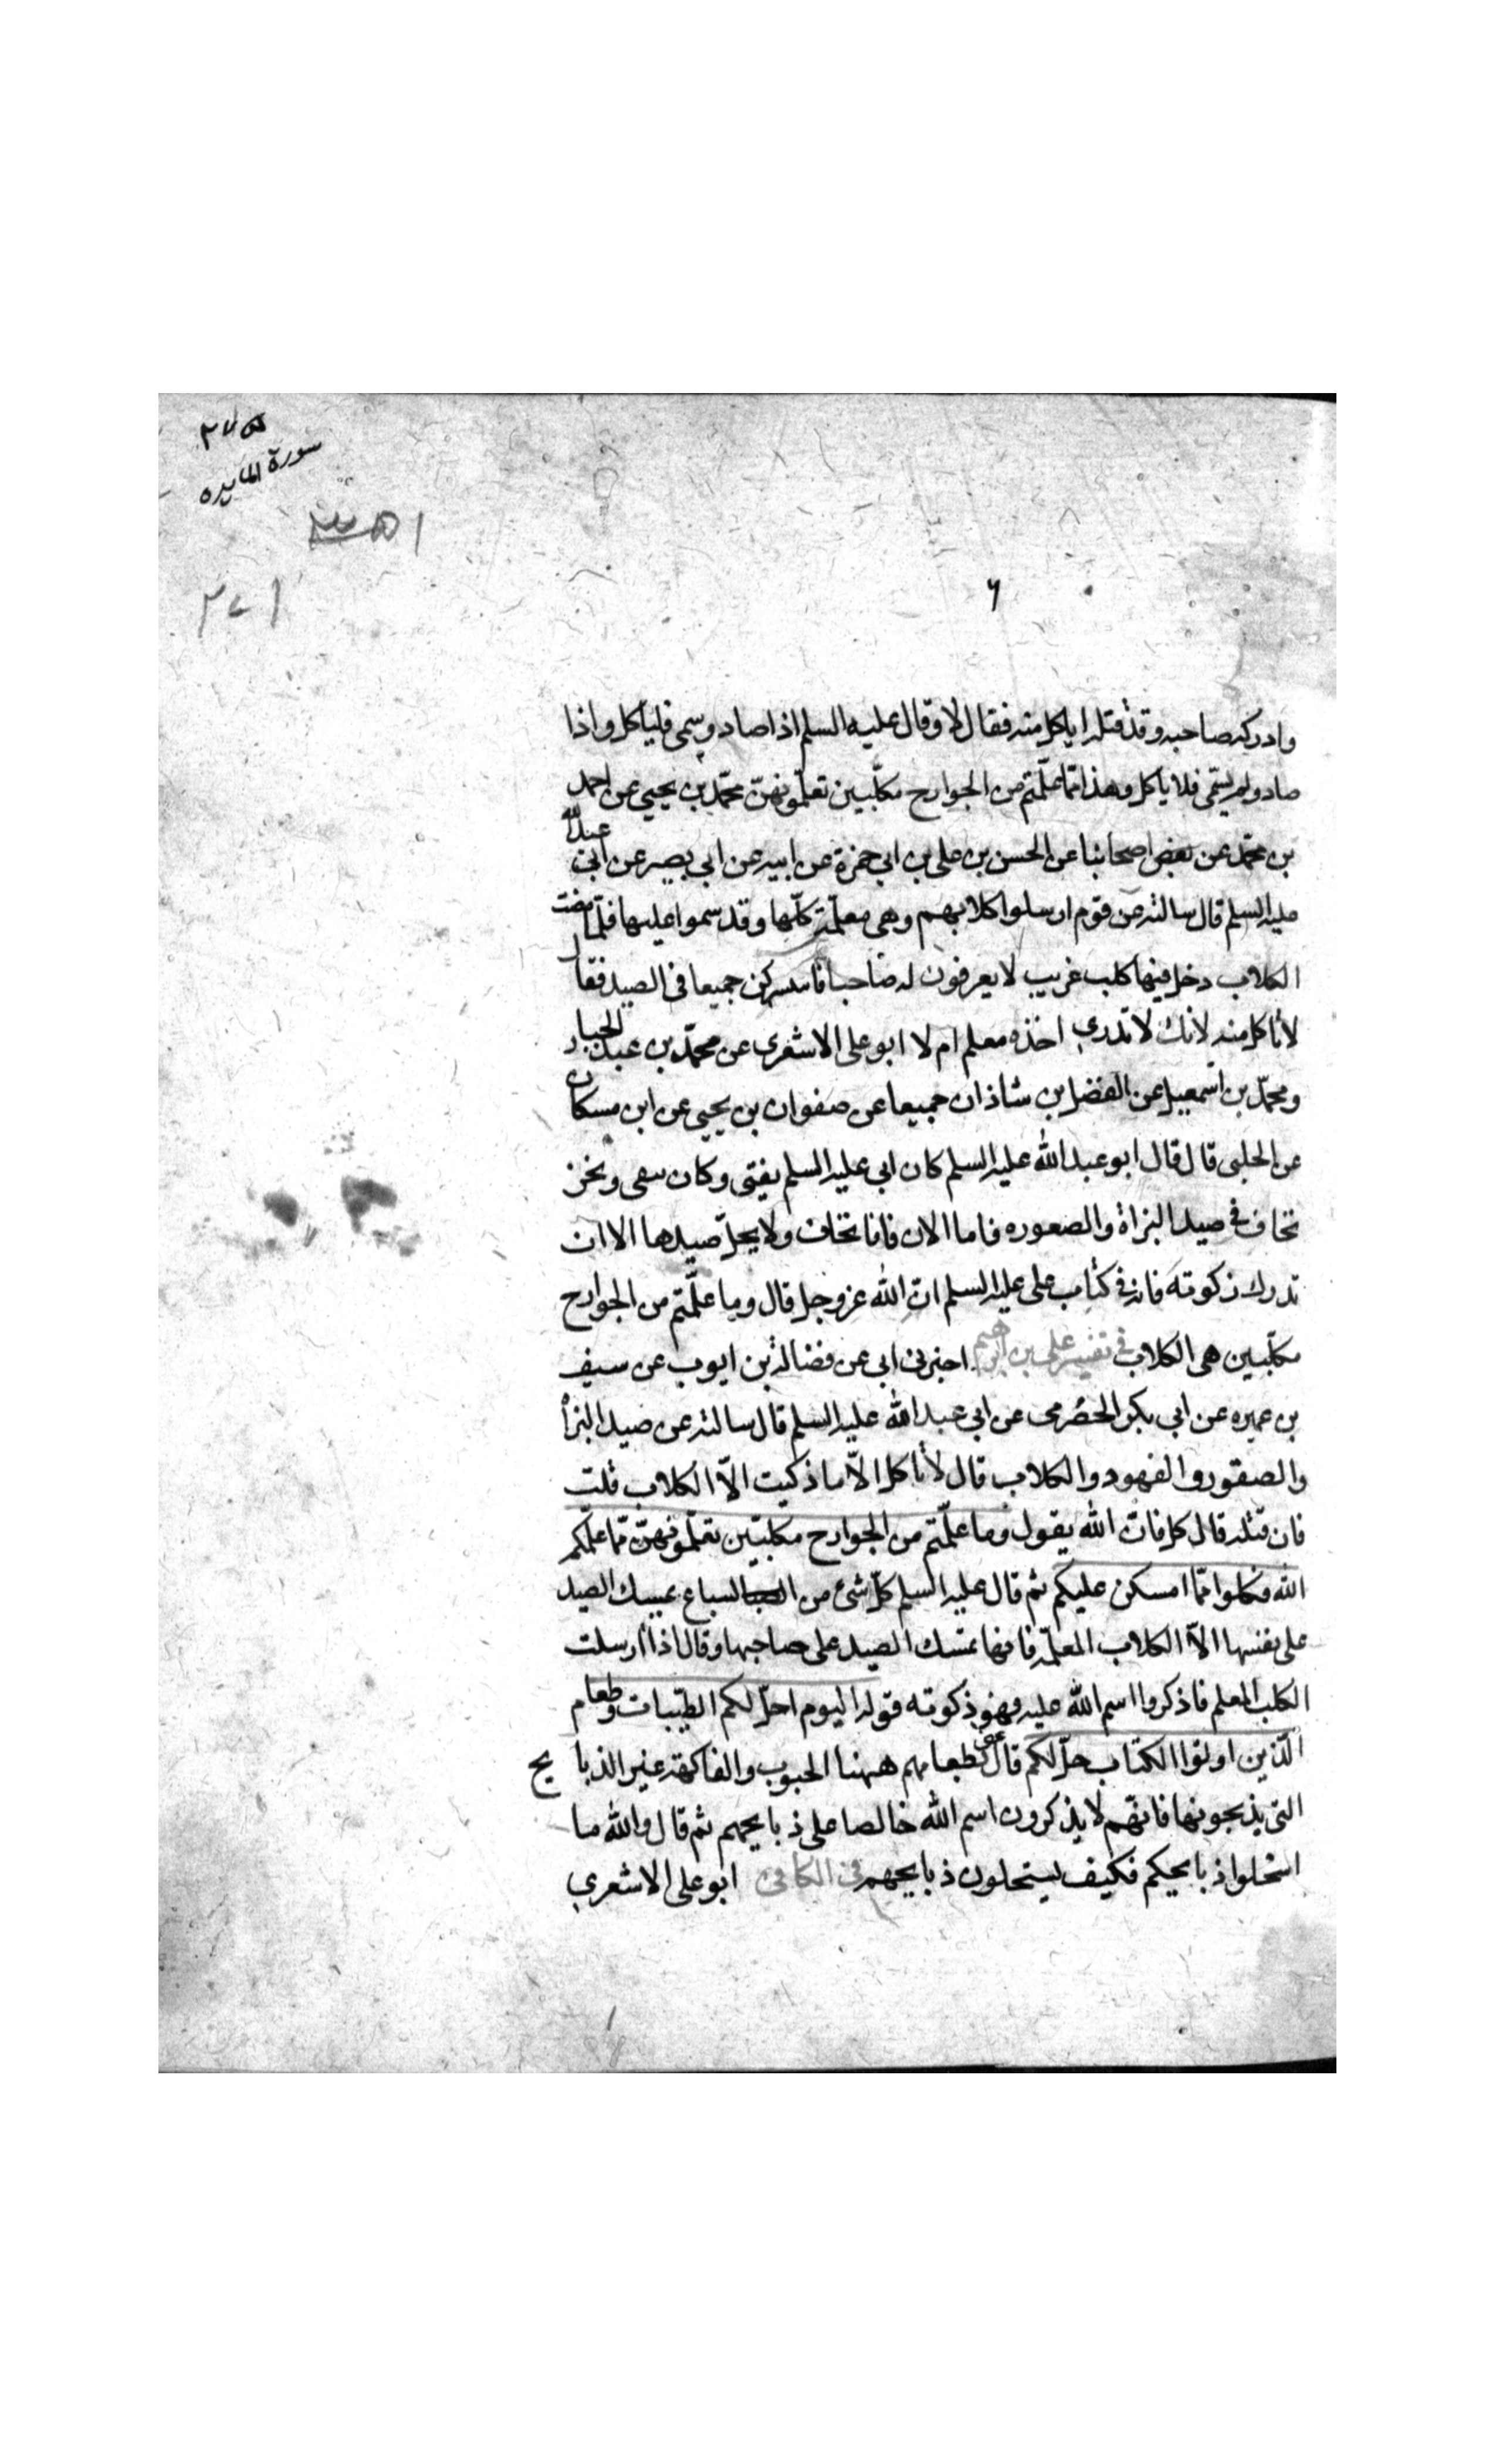 ٢٧٥
سورة المايده
٢٧١
٦
وادركه صاحبه وقد قتله ايأكل منه فقال لا وقال عليه السلم اذا صاد وسمى فليأكل واذا
صاد ولم يسمّى فلا يأكل وهذا ممّا علّمتم من الجوارح مكلّبين تعلّمونهنّ محمّد بن يحيى عن احمد
بن محمّد عن بعض اصحابنا عن الحسن بن على بن ابى حمزة عن ابيه عن ابى بصير عن ابى عبد الله
عليه السلم قال سالته عن قوم ارسلوا كلابهم وهى معلّمة كلّها وقد سموا عليها فلمّا مضت
الكلاب دخل فيها كلب غريب لا يعرفون له صاحبا فاشتركن جميعا فى الصيد فقال
لا تأكل منه لانك لا تدرى اخذه معلم ام لا ابو على الاشعرى عن محمّد بن عبد الجبار
ومحمّد بن اسمعيل عن الفضل بن شاذان جميعا عن صفوان بن يحيى عن ابن مسكان
عن الحلبى قال قال ابو عبد الله عليه السلم كان ابى عليه السلم يفتى وكان يتقى ونحن
نخاف فى صيد البزاة والصعوره فاما الان فانا لا نخاف ولا يحلّ صيدها الا ان
تدرك ذكوته فانه فى كتاب على عليه السلم انّ الله عز وجل قال وما علّمتم من الجوارح
مكلّبين هى الكلاب فى تفسير على بن ابرهيم اخبرنى ابى عن فضالة بن ايوب عن سيف
بن عميره عن ابى بكر الحضرمى عن ابى عبد الله عليه السلم قال سالته عن صيد البزاة
والصقور والفهود والكلاب قال لا تأكل الّا ما ذكيت الّا الكلاب قلت
فان قتله قال كل فانّ الله يقول وما علّمتم من الجوارح مكلبّين تعلّمونهنّ ممّا علّمكم
الله فكلوا ممّا امسكن عليكم ثم قال عليه السلم كلّ شئ من السباع يمسك الصيد
على نفسها الّا الكلاب المعلّمة فانها تمسك الصيد على صاحبها وقال اذا ارسلت
الكلب المعلم فاذكروا اسم الله عليه فهو ذكوته قوله اليوم احلّ لكم الطيّبات وطعام
الّذين اوتوا الكتاب حلّ لكم قال عنى بطعامهم ههنا الحبوب والفاكهة غير الذبايح
التى يذبحونها فانهّم لا يذكرون اسم الله خالصا على ذبايحهم ثم قال والله ما
استحلوا ذبايحكم فكيف تستحلون ذبايحهم فى الكافى ابو على الاشعرى